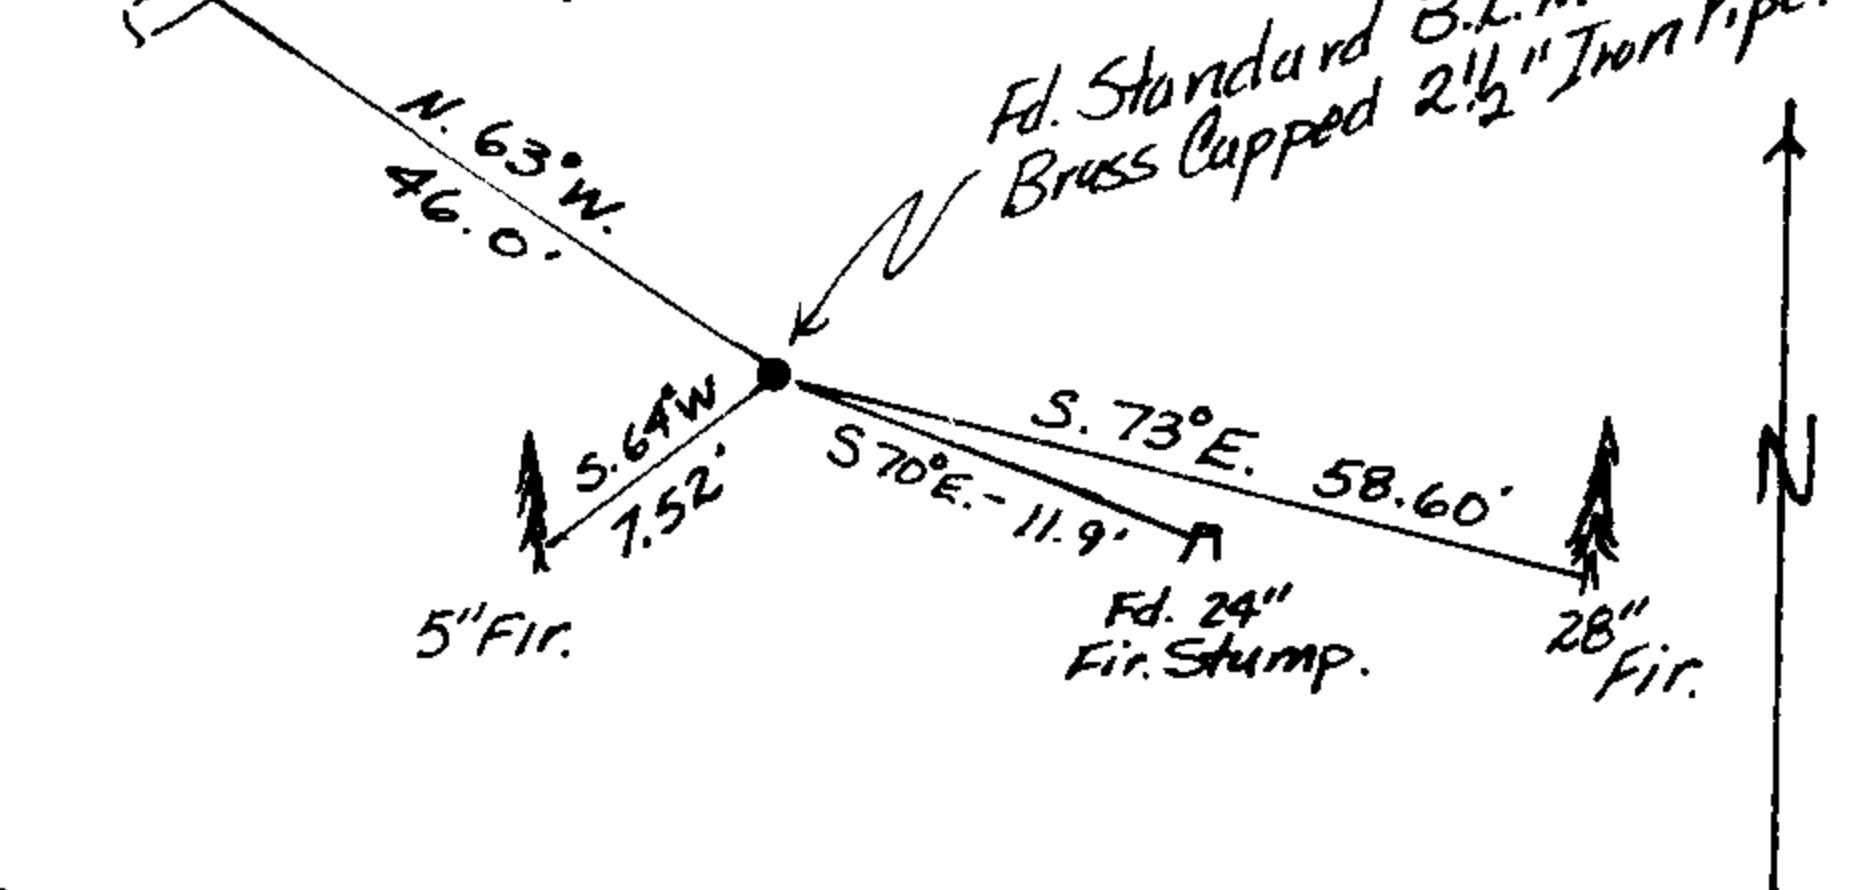 Fd. Standard B.L.M.
Brass Capped 2½" Iron Pipe.
N. 63° W.
46.0'
S. 64° W
7.52'
S. 73° E. 58.60'
S 70° E. - 11.9'
N
5" Fir.
Fd. 24"
Fir. Stump.
28"
Fir.